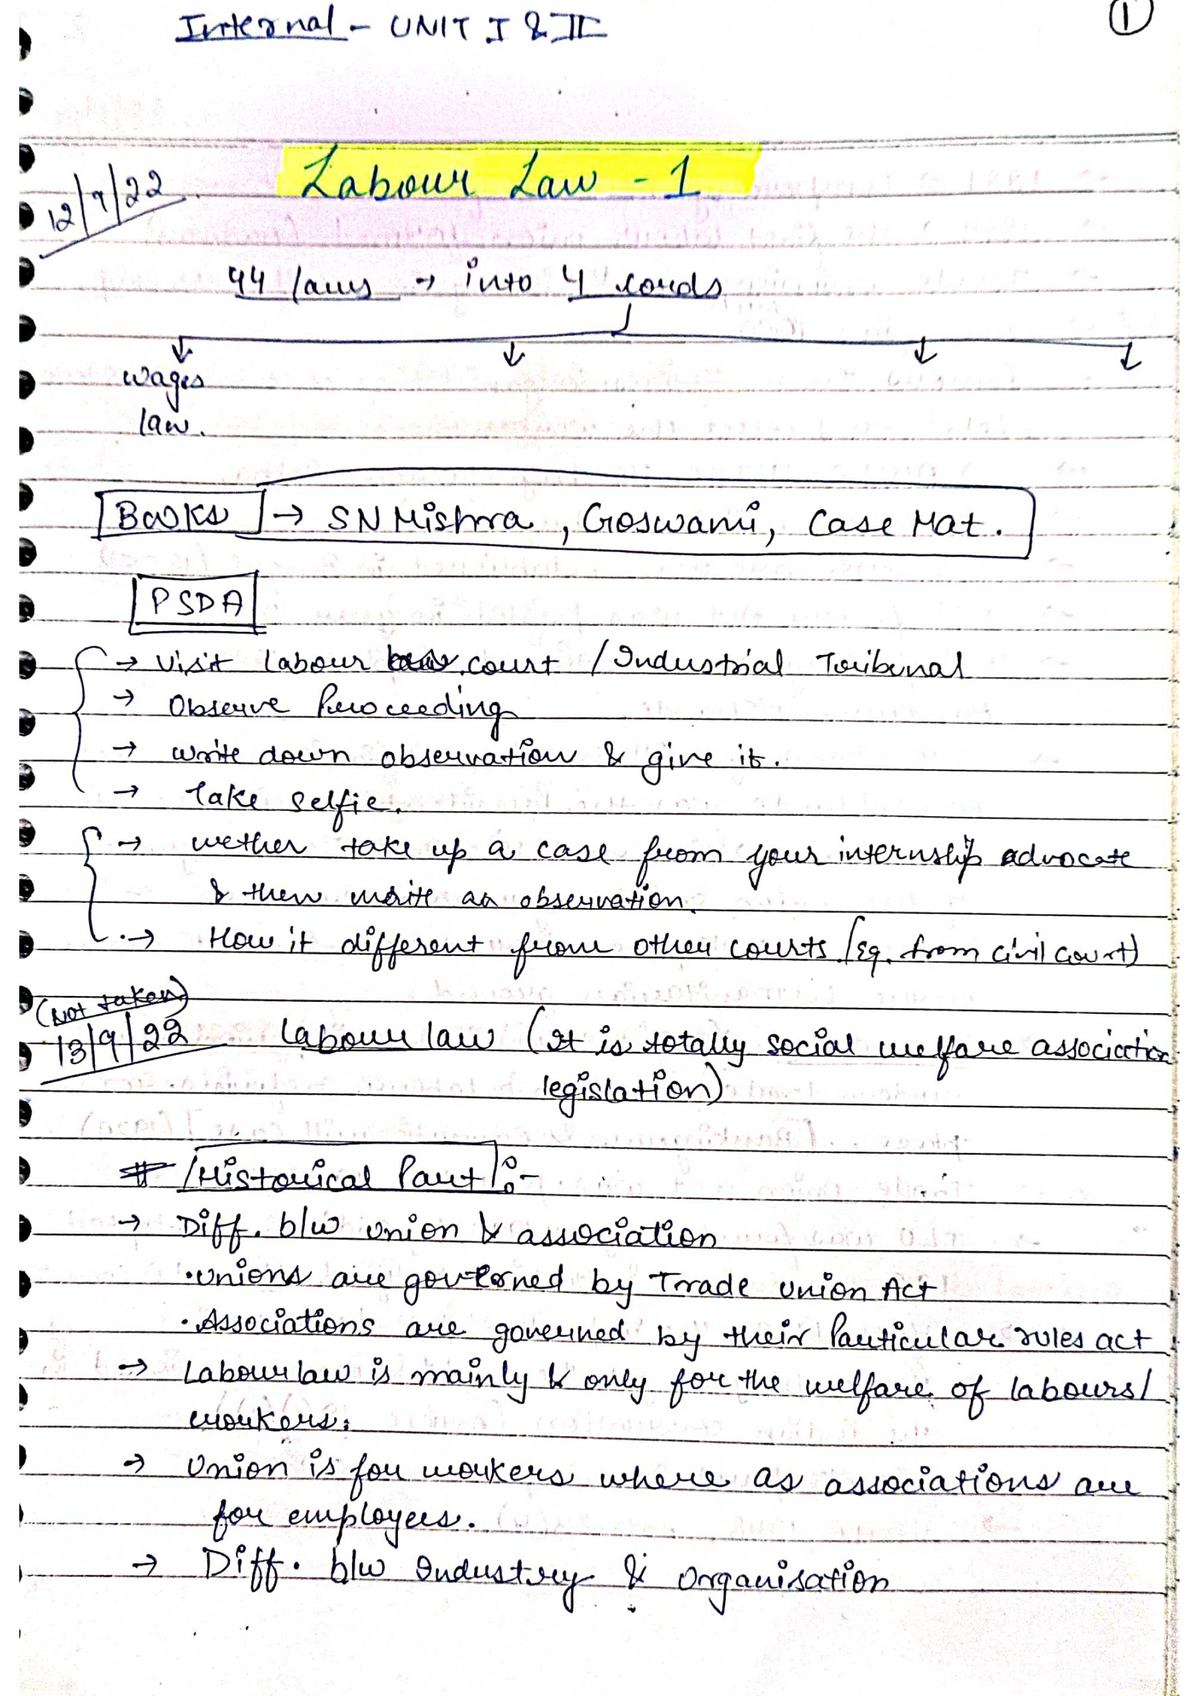 Internal - UNIT I & II
1
12/9/22
Labour Law - 1
44 laws → into 4 cords
wages
law.
Books → SN Mishra, Goswami, Case Mat.
PSDA
→ Visit labour court / Industrial Tribunal
→ Observe Proceeding
→ write down observation & give it.
→ Take selfie.
→ wether take up a case from your internship advocate
& then write an observation.
→ How it different from other courts (eg. from civil court)
(Not taken)
13/9/22
Labour law (It is totally social welfare association
legislation)
# Historical Part :-
→ Diff. b/w union & association
• Unions are governed by Trade Union Act
• Associations are governed by their Particular rules act
→ Labour law is mainly & only for the welfare of labours/
workers.
→ Union is for workers where as associations are
for employees.
→ Diff. b/w Industry & organisation